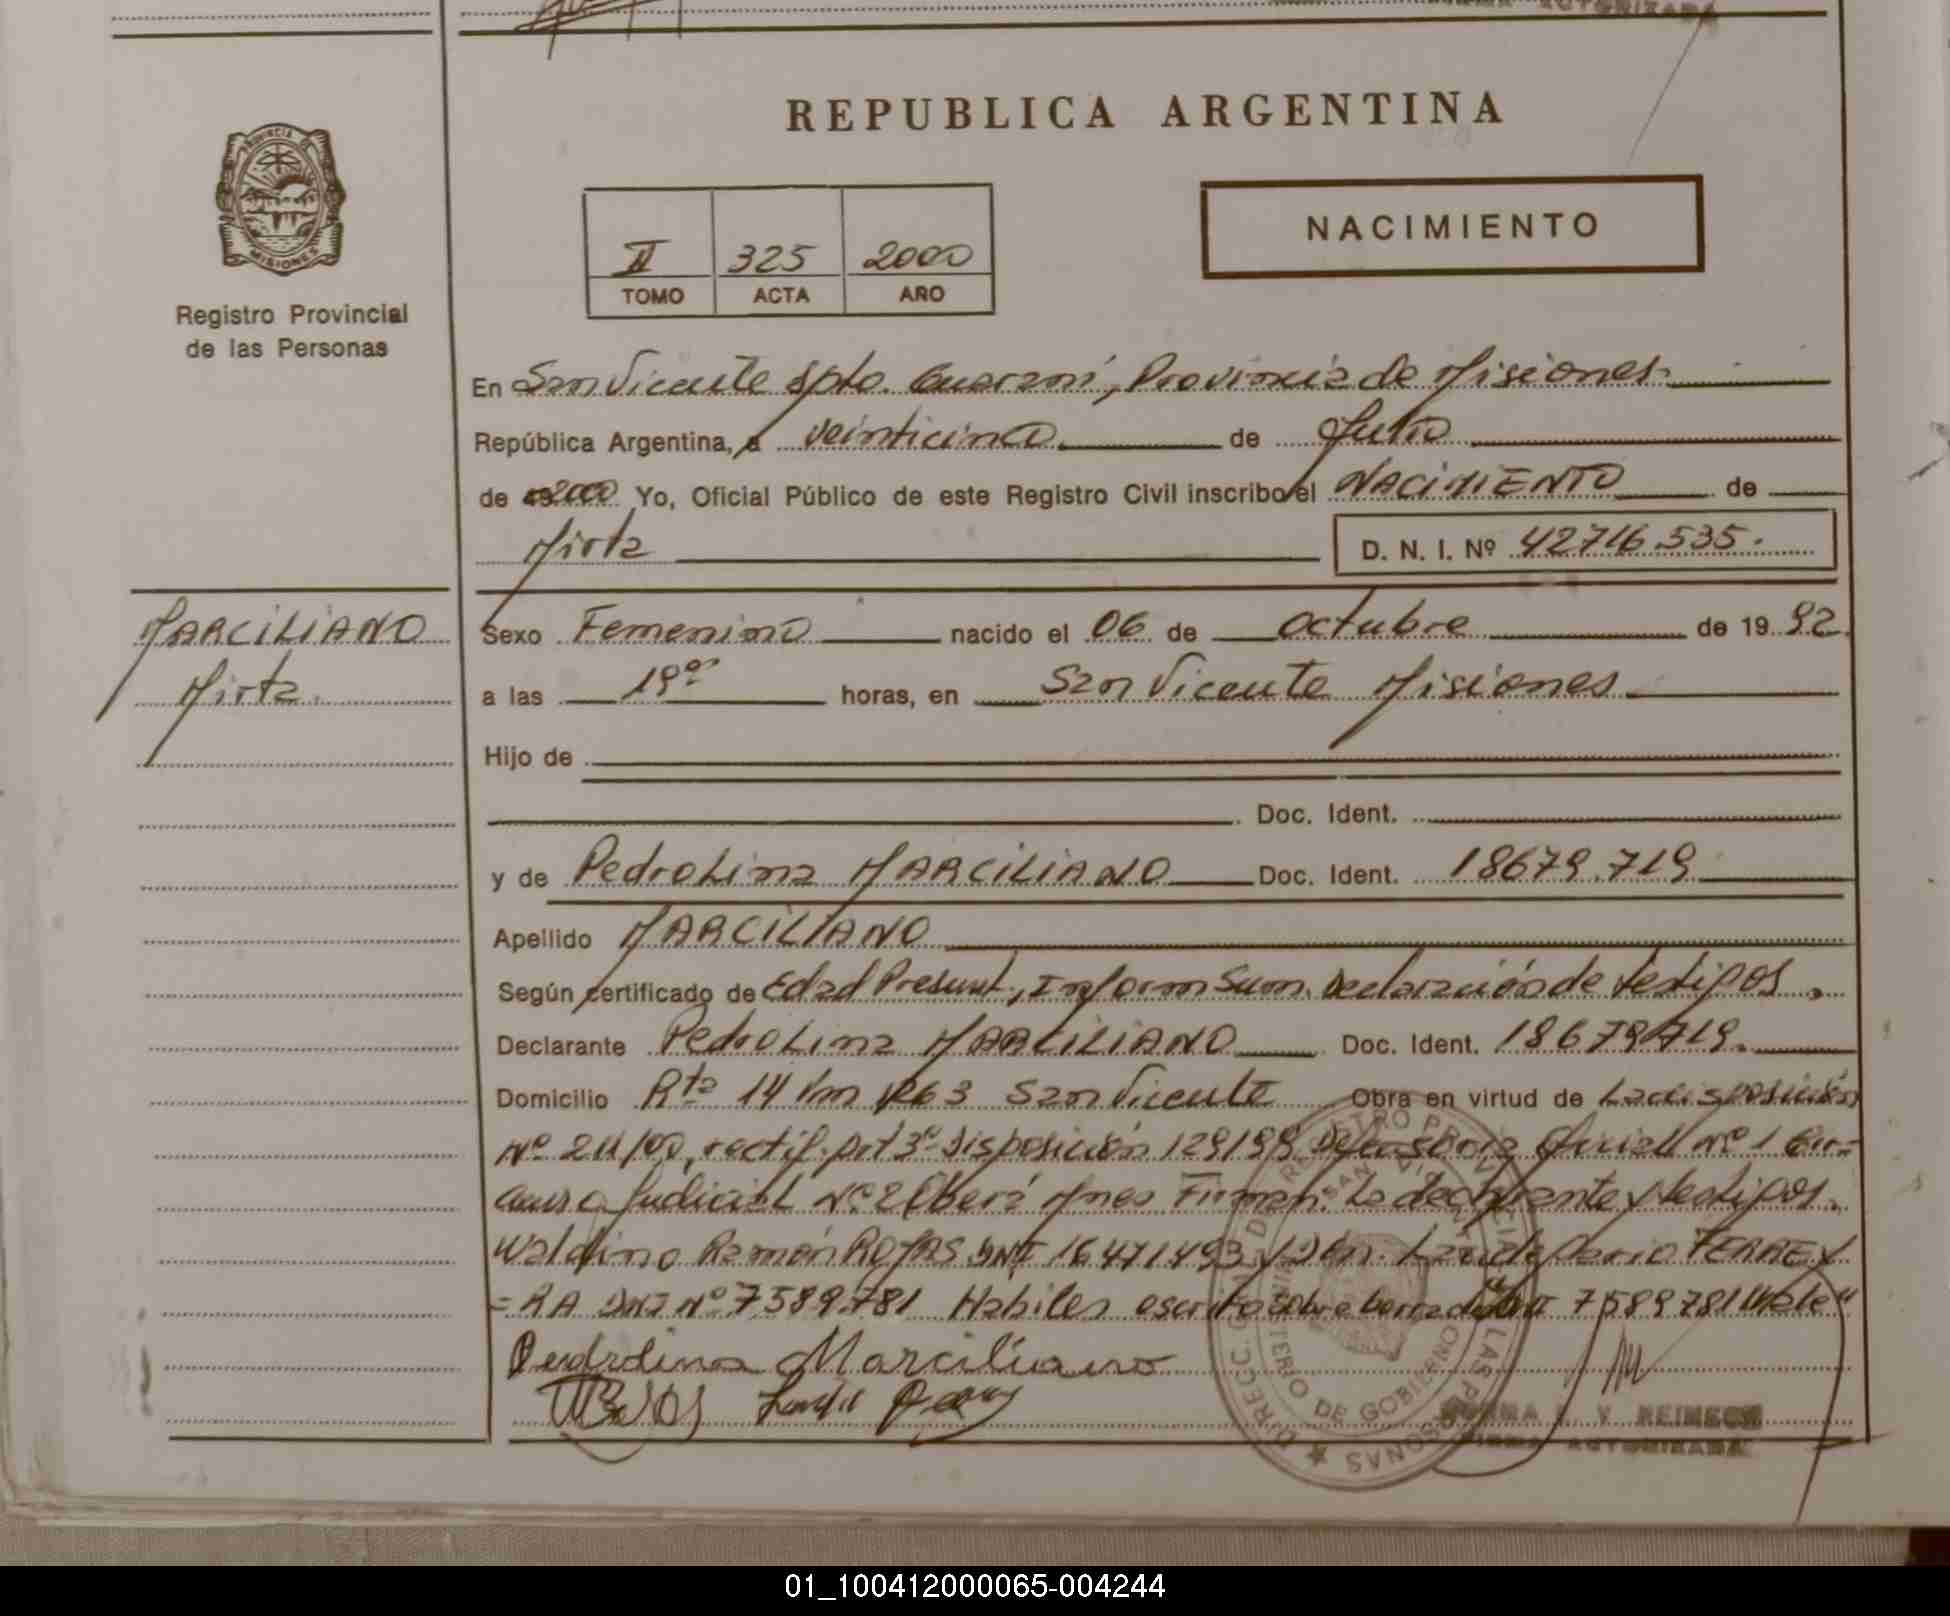 REPUBLICA ARGENTINA
PROVINCIA DE MISIONES
Registro Provincial
de las Personas
II 325 2000
TOMO ACTA AÑO
NACIMIENTO
En San Vicente Dpto. Guaraní, Provincia de Misiones
República Argentina, a veinticinco de Julio
de 2000 Yo, Oficial Público de este Registro Civil inscribo el NACIMIENTO de
Mirta
D. N. I. Nº 42716.535.
MARCILIANO
Mirta.
Sexo Femenino nacido el 06 de Octubre de 19 92
a las 19 horas, en San Vicente Misiones
Hijo de
Doc. Ident.
y de PedroLina MARCILIANO Doc. Ident. 18679.719
Apellido MARCILIANO
Según certificado de Edad Presunt, Inform Sum. Declaración de testigos.
Declarante PedroLina MARCILIANO Doc. Ident. 18679719.
Domicilio Rta 14 km 1263 San Vicente Obra en virtud de La disposición
Nº 211/00, rectif. art 3º Disposición 129199 Defensoria Oficial nº 1 Cir=
Judicial Nº 2 Oberá Mnes Firman. La declarante y testigos.
Waldino Ramón ROJAS DNI 16471493 y Dario FERREY
=RA DNI Nº 7589.781 Habiles escrito sobre borrado DNI 7589781 Vale"
Pedrolina Marciliano
DIRECC GRAL DE REGISTRO PROVINCIAL DE LAS PERSONAS
MINISTERIO DE GOBIERNO
SAN VICENTE
NORMA I. V. REINECK
FIRMA AUTORIZADA
01_100412000065-004244